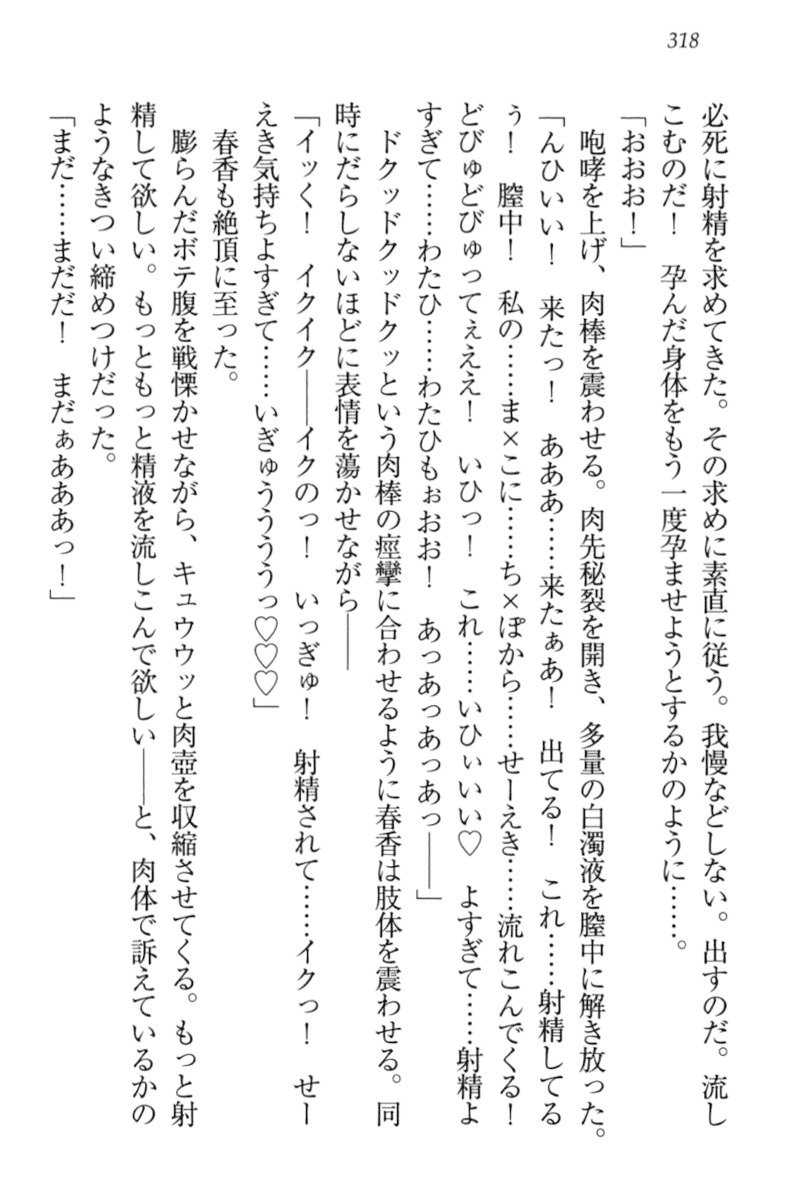 318
必死に射精を求めてきた。その求めに素直に従う。我慢などしない。出すのだ。流し
こむのだ！　孕んだ身体をもう一度孕ませようとするかのように……。
「おおお！」
　咆哮を上げ、肉棒を震わせる。肉先秘裂を開き、多量の白濁液を膣中に解き放った。
「んひいい！　来たっ！　あああ……来たぁあ！　出てる！　これ……射精してる
ぅ！　膣中！　私の……ま×こに……ち×ぽから……せーえき……流れこんでくる！
どびゅどびゅってぇええ！　いひっ！　これ……いひぃいい♡　よすぎて……射精よ
すぎて……わたひ……わたひもぉおお！　あっあっあっあっ――」
　ドクッドクッドクッという肉棒の痙攣に合わせるように春香は肢体を震わせる。同
時にだらしないほどに表情を蕩かせながら――
「イッく！　イクイク――イクのっ！　いっぎゅ！　射精されて……イクっ！　せー
えき気持ちよすぎて……いぎゅうううぅっ♡♡♡」
　春香も絶頂に至った。
　膨らんだボテ腹を戦慄かせながら、キュウウッと肉壺を収縮させてくる。もっと射
精して欲しい。もっともっと精液を流しこんで欲しい――と、肉体で訴えているかの
ようなきつい締めつけだった。
「まだ……まだだ！　まだぁあああっ！」